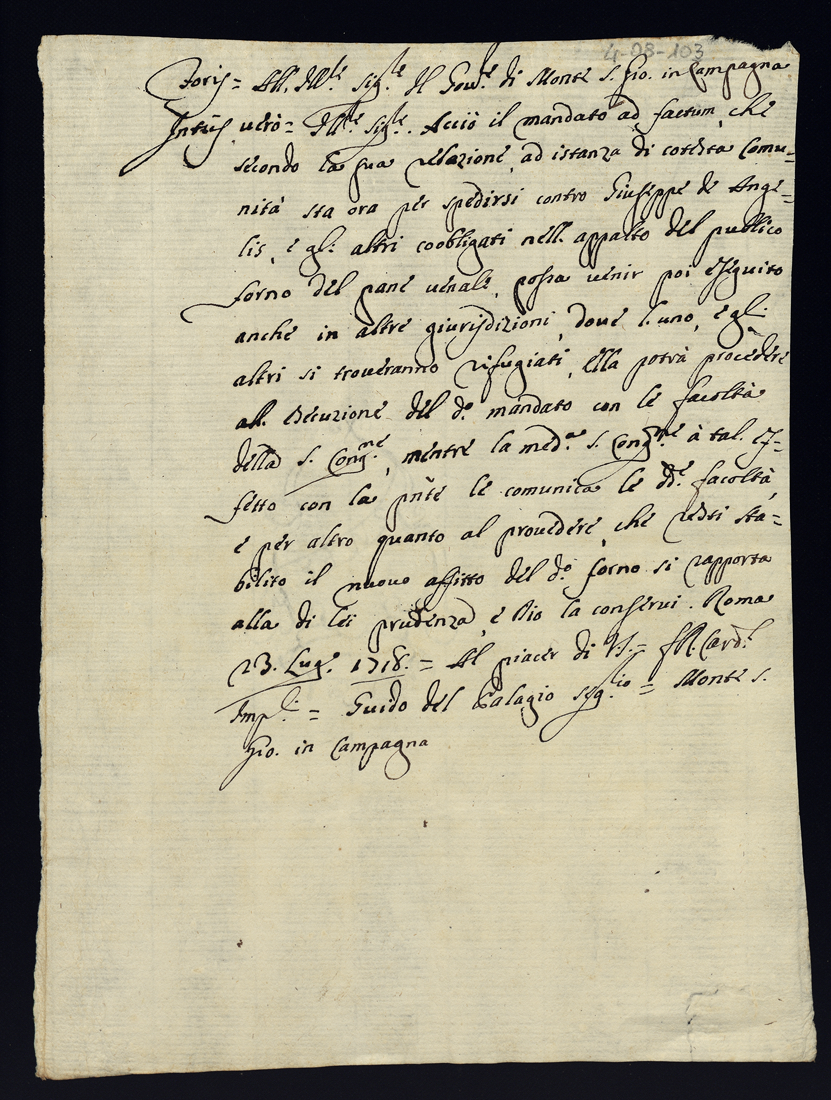 4-08-103
Foris = All. Ill.re Sig.re Il Gov.re di Monte S. Gio. in Campagna
Intus verò = Ill.re Sig.re. Acciò il mandato ad factum, che
secondo la sua relazione, ad istanza di cotesta Comu=
nità sta ora per spedirsi contro Giuseppe de Ange=
lis, e gl'altri coobligati nell'appalto del publico
forno del pane venale, possa venir poi eseguito
anche in altre giurisdizioni, dove l'uno, e gl'
altri si troveranno rifugiati, ella potrà procedere
all'esecuzione del d.o mandato con le facoltà
della S. Cong.ne, mentre la med.a S. Cong.ne à tal'ef=
fetto con la pn̄te le comunica le d.e facoltà,
e per altro quanto al provedere, che resti sta=
bilito il nuovo affitto del d.o forno si rapporta
alla di lei prudenza, e Dio la conservi. Roma
23. Lug.o 1718. = Al piacer di V.S. = Card.l
Imp.li = Guido del Palagio Seg.rio = Monte S.
Gio. in Campagna